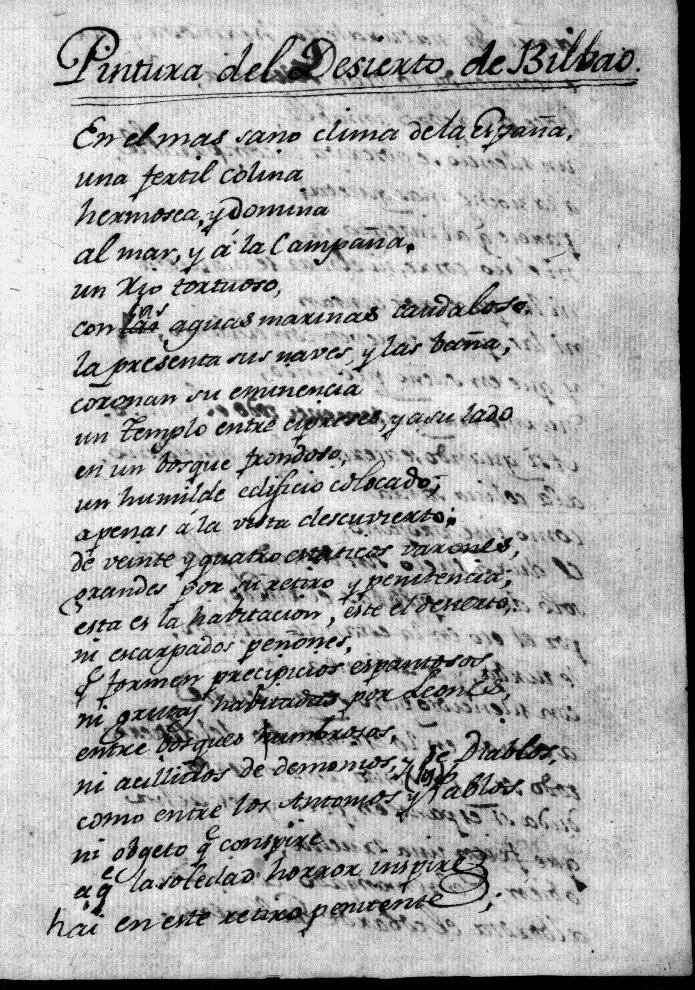 Pintura del Desierto de Bilbao.
En el mas sano clima de la España,
una fertil colina
hermosea, y domina
al mar, y á la Campaña.
un Rio tortuoso,
con sus aguas marinas caudaloso,
la presenta sus naves, y las baña,
coronan su eminencia
un Templo entre cipreses, y a su lado
en un bosque frondoso,
un humilde edificio colocado,
apenas á la vista descuvierto.
de veinte y quatro extaticos varones,
grandes por su retiro y penitencia,
esta es la habitacion, este el desierto,
ni escarpados peñones,
q̄ formen precipicios espantosos
ni grutas habitadas por Leones,
entre bosques rumbrosos,
ni de demonios, y de Diablos,
como entre los Antonios y los Pablos.
ni obgeto q̄ conspire
a q̄ la soledad horror inspire
hai en este retiro penitente;